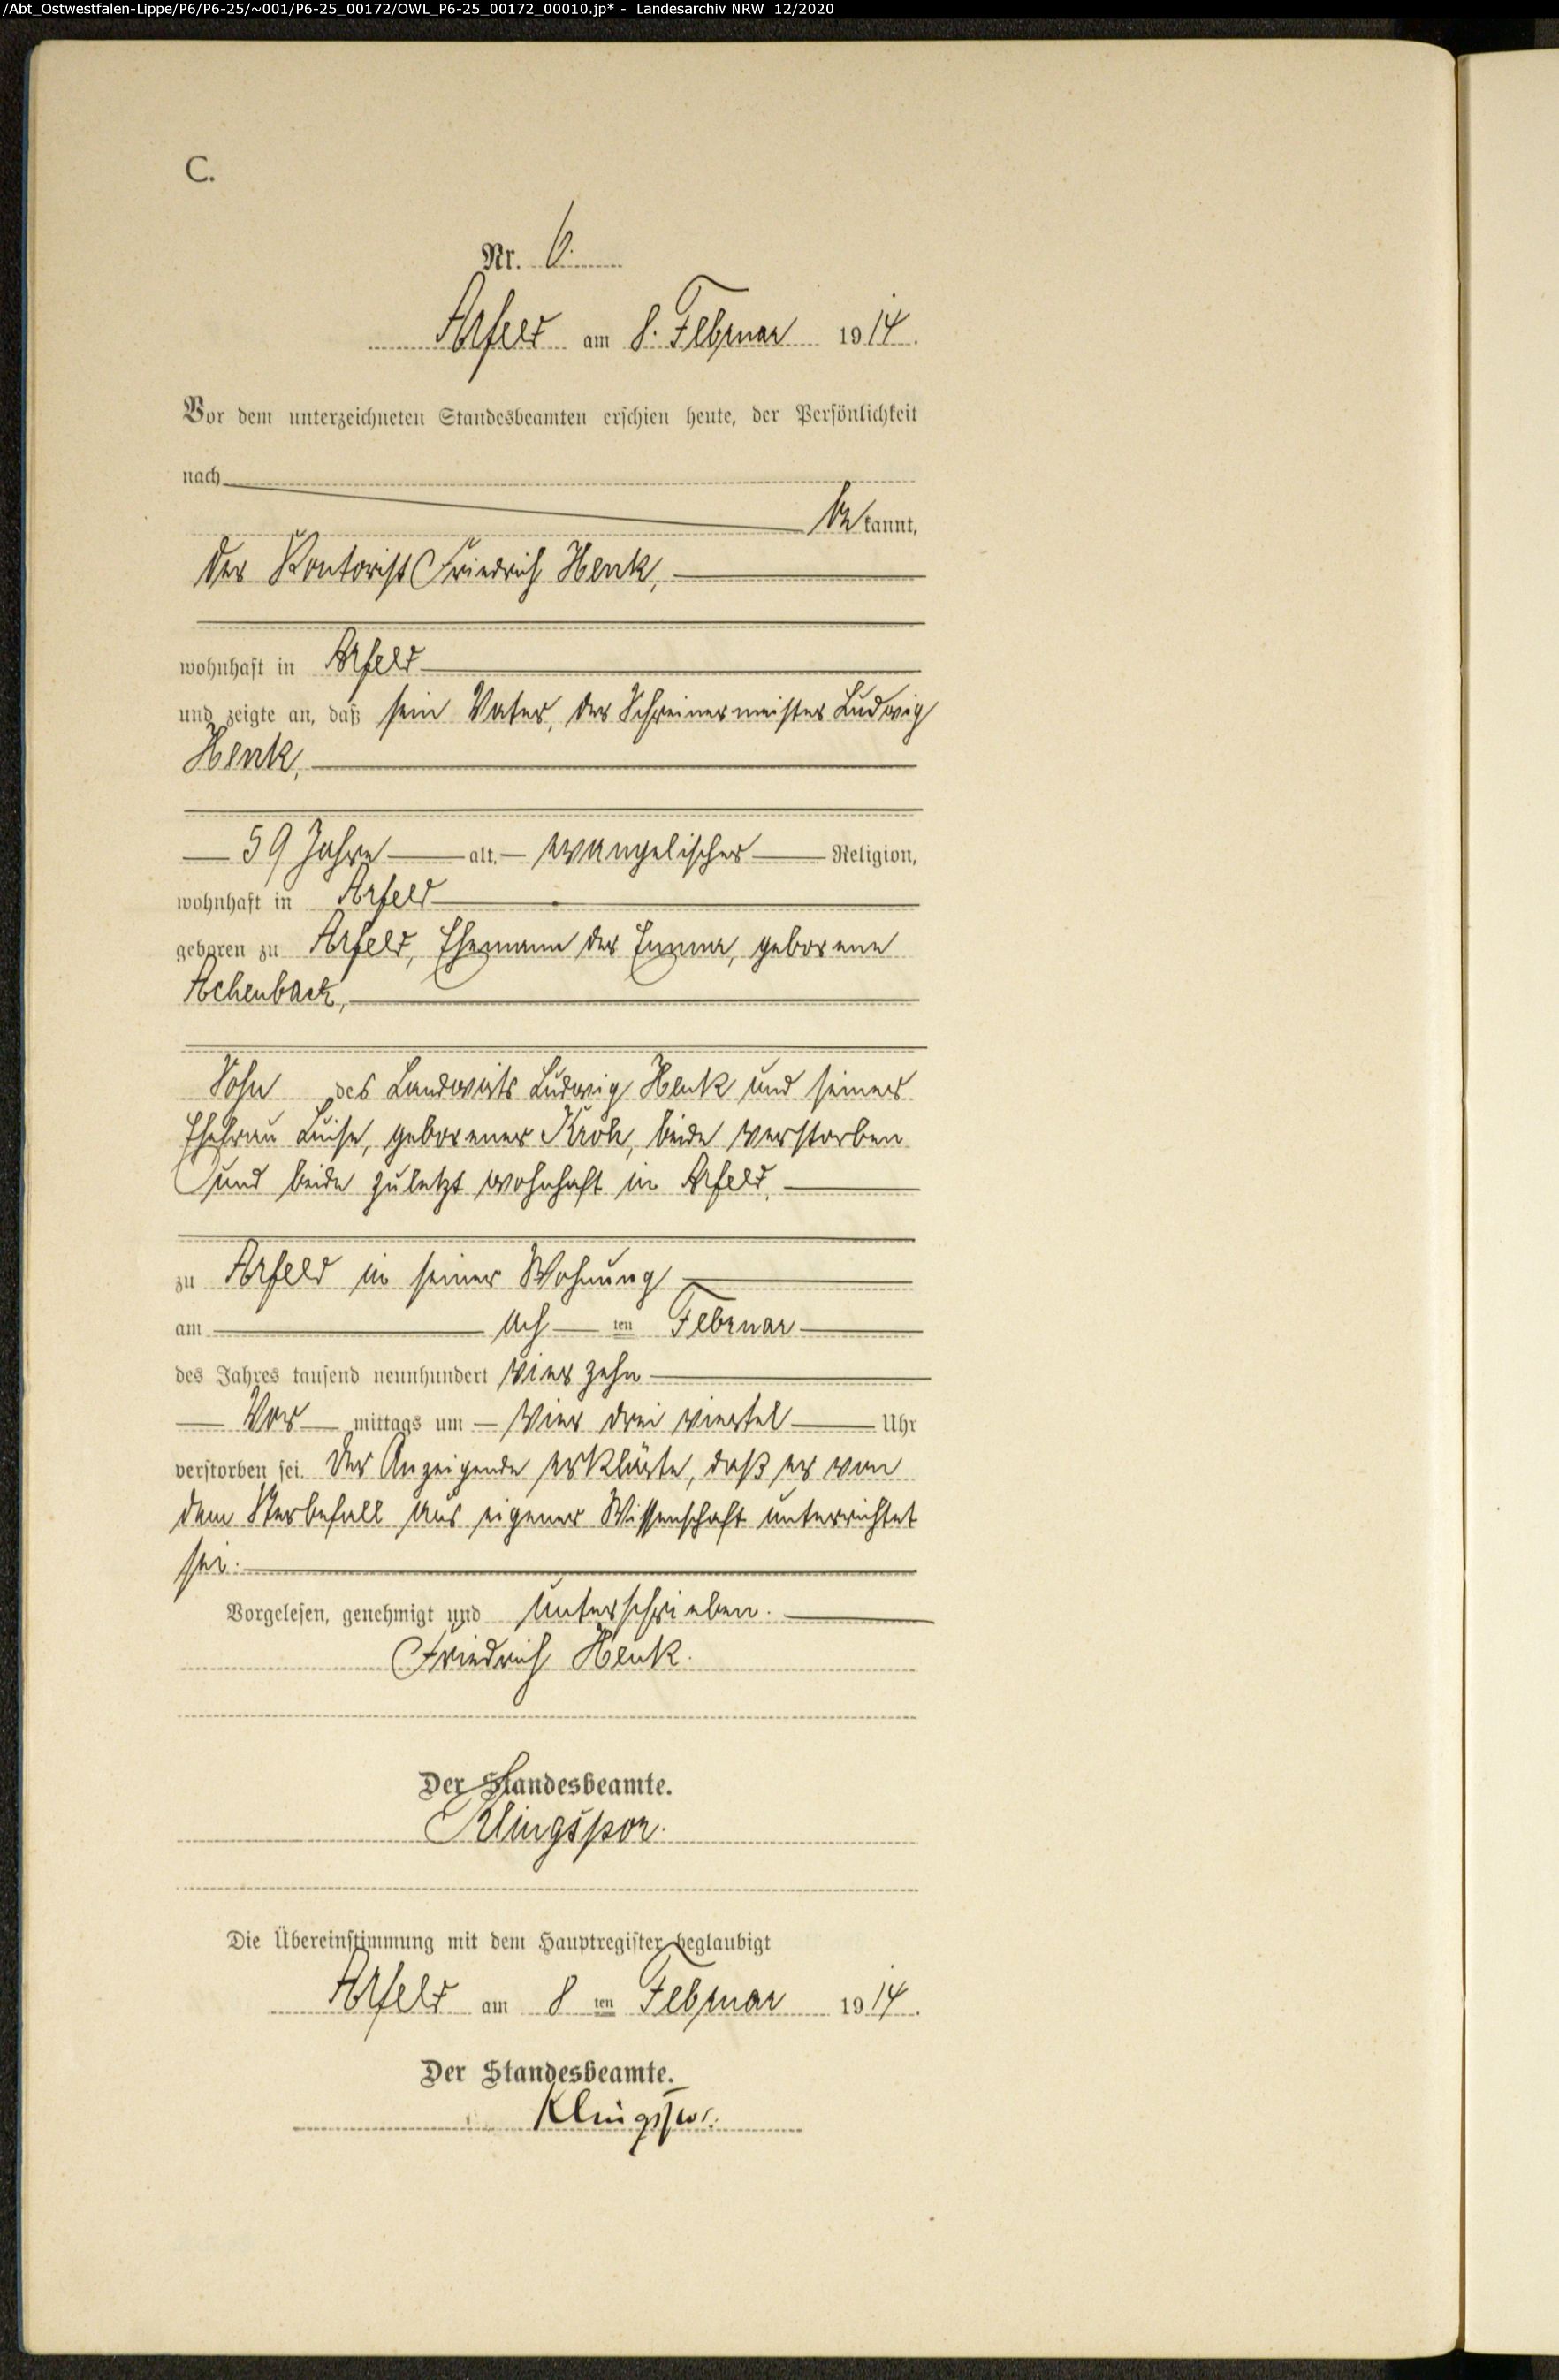 /Abt_Ostwestfalen-Lippe/P6/P6-25/~001/P6-25_00172/OWL_P6-25_00172_00010.jp* - Landesarchiv NRW 12/2020
C.
Nr. 6.
Arfeld am 8. Februar 1914.
Vor dem unterzeichneten Standesbeamten erschien heute, der Persönlichkeit
nach
be kannt,
der Kontorist Friedrich Henk,
wohnhaft in Arfeld
und zeigte an, daß sein Vater, der Schreinermeister Ludwig
Henk,
59 Jahre alt, evangelischer Religion,
wohnhaft in Arfeld
geboren zu Arfeld, Ehemann der Emma, geborene
Achenbach,
Sohn des Landwirts Ludwig Henk und seiner
Ehefrau Luise, geborener Kroh, beide verstorben
und beide zuletzt wohnhaft in Arfeld,
zu Arfeld in seiner Wohnung
am ach ten Februar
des Jahres tausend neunhundert vierzehn
Vor mittags um vier drei viertel Uhr
verstorben sei. Der Anzeigende erklärte, daß er von
dem Sterbefall aus eigener Wissenschaft unterrichtet
sei.
Vorgelesen, genehmigt und unterschrieben.
Friedrich Henk.
Der Standesbeamte.
Klingspor.
Die Übereinstimmung mit dem Hauptregister beglaubigt
Arfeld am 8 ten Februar 1914.
Der Standesbeamte.
Klingspor.